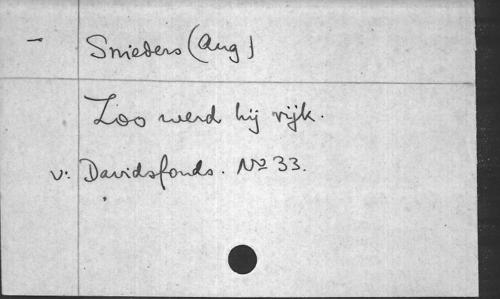 - Snieders (Aug)
Zoo werd hij rijk.
v: Davidsfonds. No 33.